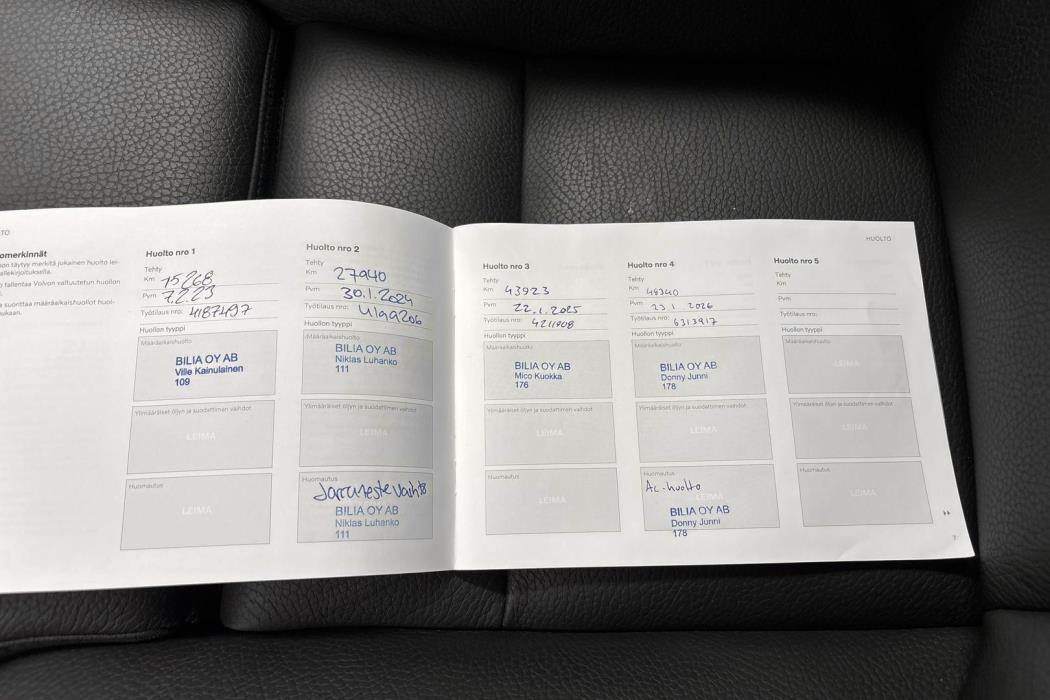 TO
omerkinnät
on täytyy merkitä jokainen huolto lei-
allekirjoituksella.
tallentaa Volvon valtuutetun huollon
suorittaa määräaikaishuollot huol-
mukaan.
Huolto nro 1
Tehty
Km 15268
Pvm 7.2.23
Työtilaus nro: 4187497
Huollon tyyppi
Määräaikaishuolto
BILIA OY AB
Ville Kainulainen
109
Ylimääräiset öljyn ja suodattimen vaihdot
LEIMA
Huomautus
LEIMA
Huolto nro 2
Tehty
Km 27940
Pvm 30.1.2024
Työtilaus nro:
Huollon tyyppi
Määräaikaishuolto
BILIA OY AB
Niklas Luhanko
111
Ylimääräiset öljyn ja suodattimen vaihdot
LEIMA
Huomautus
Jarruneste vaihto
BILIA OY AB
Niklas Luhanko
111
HUOLTO
Huolto nro 3
Tehty
Km 43923
Pvm 22.1.2025
Työtilaus nro: 4211908
Huollon tyyppi
Määräaikaishuolto
BILIA OY AB
Mico Kuokka
176
Ylimääräiset öljyn ja suodattimen vaihdot
LEIMA
Huomautus
LEIMA
Huolto nro 4
Tehty
Km 49340
Pvm 23.1.2026
Työtilaus nro: 6313917
Huollon tyyppi
Määräaikaishuolto
BILIA OY AB
Donny Junni
178
Ylimääräiset öljyn ja suodattimen vaihdot
LEIMA
Huomautus
AC-huolto
LEIMA
BILIA OY AB
Donny Junni
178
Huolto nro 5
Tehty
Km
Pvm
Työtilaus nro:
Huollon tyyppi
Määräaikaishuolto
LEIMA
Ylimääräiset öljyn ja suodattimen vaihdot
LEIMA
Huomautus
LEIMA
7